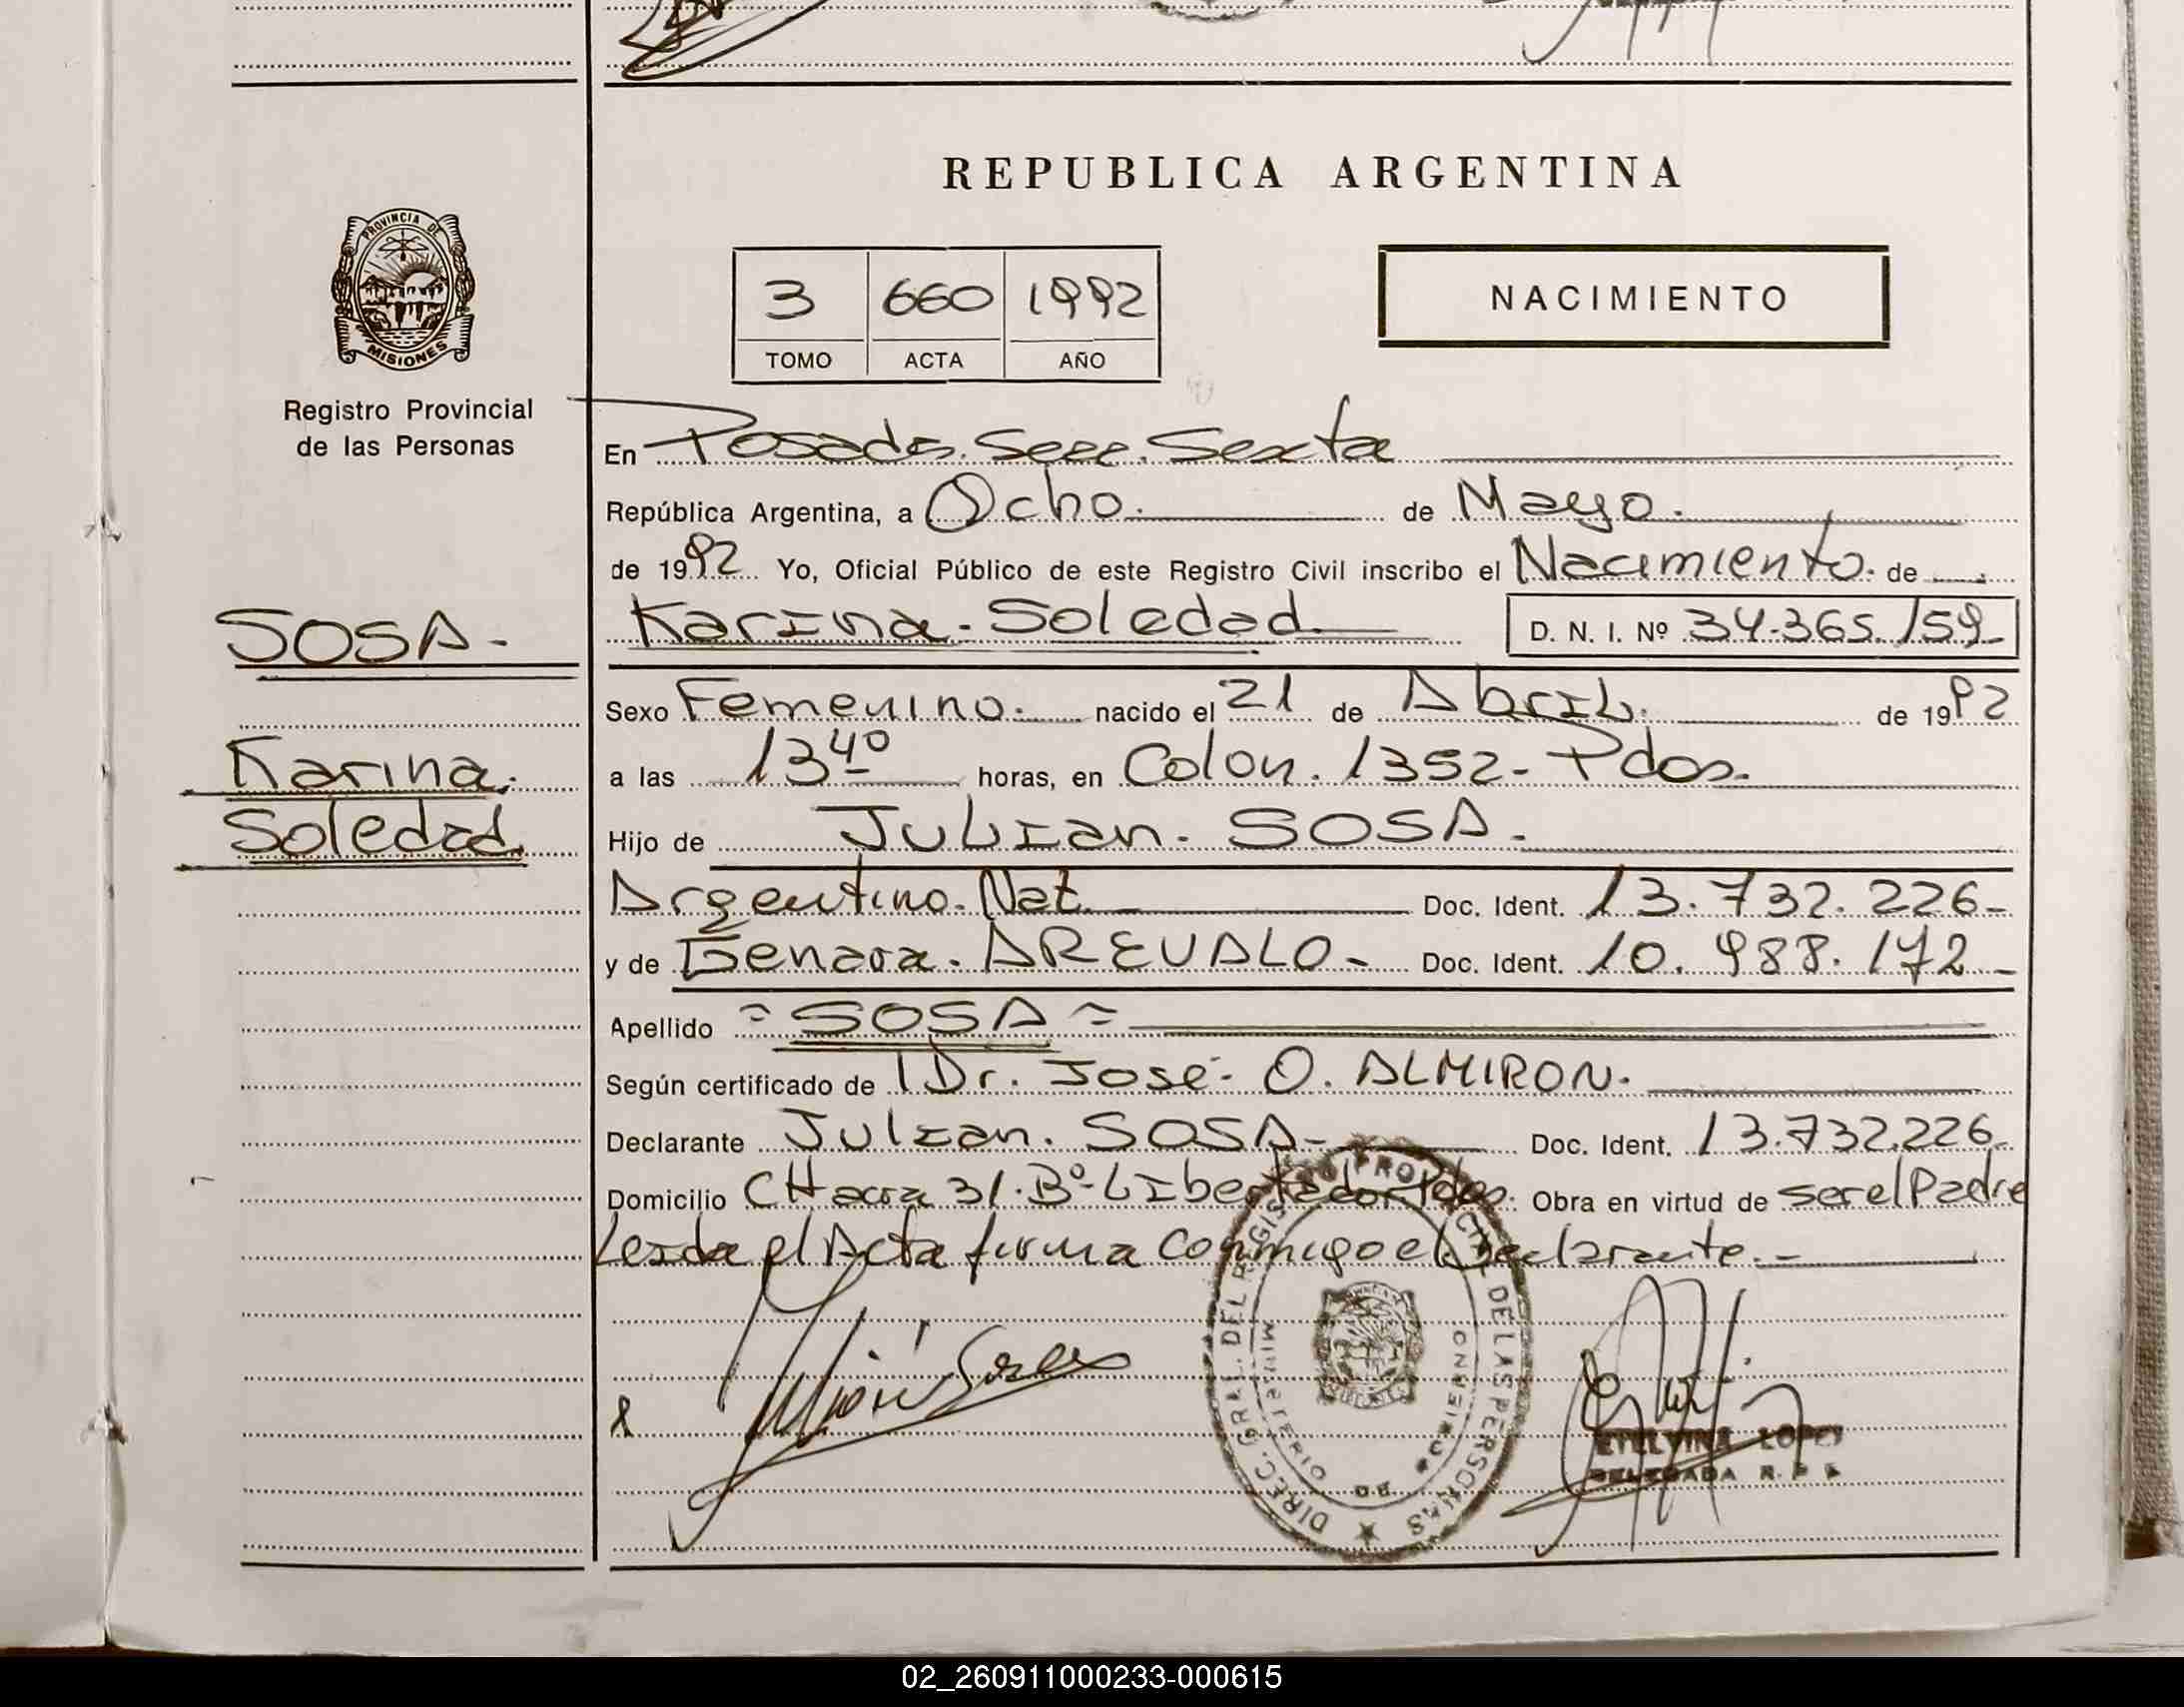 REPUBLICA ARGENTINA
PROVINCIA DE
MISIONES
Registro Provincial
de las Personas
3 660 1992
TOMO ACTA AÑO
NACIMIENTO
En Posadas. Secc. Sexta
República Argentina, a Ocho. de Mayo.
de 1992 Yo, Oficial Público de este Registro Civil inscribo el Nacimiento. de
SOSA-
Karina. Soledad D. N. I. Nº 34.365.159-
Sexo Femenino. nacido el 21 de Abril. de 1992
Karina.
a las 13 40 horas, en Colon. 1352- Pdas.
Soledad.
Hijo de Julian. SOSA.
Argentino. Nat. Doc. Ident. 13.732.226-
y de Genara. AREVALO- Doc. Ident. 10.988.172-
Apellido = SOSA =
Según certificado de Dr. José. O. ALMIRON.
Declarante Julian. SOSA- Doc. Ident. 13.732.226.
Domicilio CHacra 31. Bº Libertador. Pdas. Obra en virtud de ser el Padre
Leida el Acta firma conmigo el Declarante.-
DIREC. GRAL. DEL REGISTRO PROVINCIAL DE LAS PERSONAS
MINISTERIO DE GOBIERNO
ETELVINA LOPEZ
DELEGADA R. P. P.
02_260911000233-000615